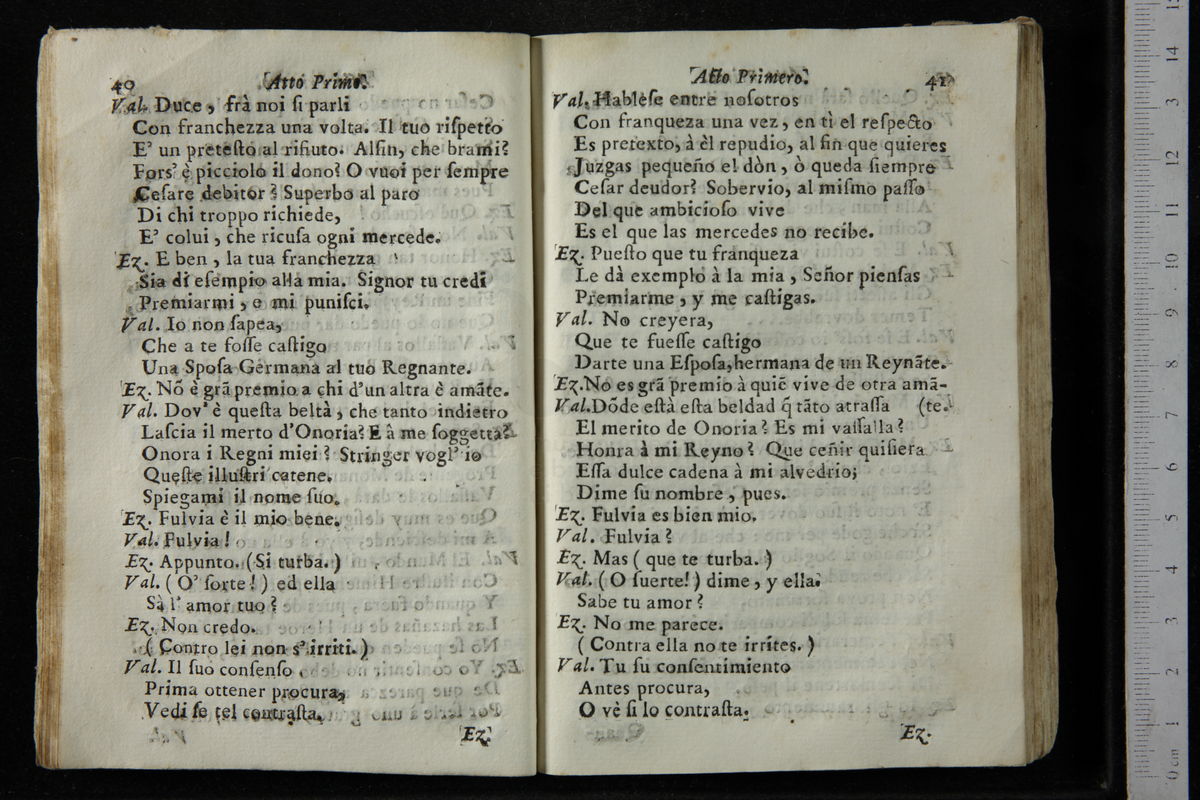 40
Atto Primo.
Val. Duce, frà noi ſi parli
Con franchezza una volta. Il tuo riſpetto
E' un preteſto al rifiuto. Alfin, che brami?
Fors' è picciolo il dono? O vuoi per ſempre
Ceſare debitor? Superbo al paro
Di chi troppo richiede,
E' colui, che ricuſa ogni mercede.
Ez. E ben, la tua franchezza
Sia di eſempio alla mia. Signor tu credi
Premiarmi, e mi puniſci.
Val. Io non ſapea,
Che a te foſſe caſtigo
Una Spoſa Germana al tuo Regnante.
Ez. Nõ è grã premio a chi d'un altra è amãte.
Val. Dov' è queſta beltà, che tanto indietro
Laſcia il merto d'Onoria? E à me ſoggetta?
Onora i Regni miei? Stringer vogl' io
Queſte illuſtri catene.
Spiegami il nome ſuo.
Ez. Fulvia è il mio bene.
Val. Fulvia!
Ez. Appunto. (Si turba.)
Val. (O' ſorte!) ed ella
Sà l' amor tuo?
Ez. Non credo.
(Contro lei non s' irriti.)
Val. Il ſuo conſenſo
Prima ottener procura,
Vedi ſe tel contraſta.
Ez.
Acto Primero.
41
Val. Hablèſe entre noſotros
Con franqueza una vez, en tì el reſpecto
Es pretexto, à èl repudio, al fin que quieres
Juzgas pequeño el dòn, ò queda ſiempre
Ceſar deudor? Sobervio, al miſmo paſſo
Del que ambicioſo vive
Es el que las mercedes no recibe.
Ez. Pueſto que tu franqueza
Le dà exemplo à la mia, Señor pienſas
Premiarme, y me caſtigas.
Val. No creyera,
Que te fueſſe caſtigo
Darte una Eſpoſa, hermana de un Reynãte.
Ez. No es grã premio à quiē vive de otra amã-
Val. Dõde eſtà eſta beldad q̃ tãto atraſſa (te.
El merito de Onoria? Es mi vaſſalla?
Honra à mi Reyno? Que ceñir quiſiera
Eſſa dulce cadena à mi alvedrio;
Dime ſu nombre, pues.
Ez. Fulvia es bien mio.
Val. Fulvia?
Ez. Mas (que te turba.)
Val. (O ſuerte!) dime, y ella?
Sabe tu amor?
Ez. No me parece.
(Contra ella no te irrites.)
Val. Tu ſu conſentimiento
Antes procura,
O vè ſi lo contraſta.
Ez.